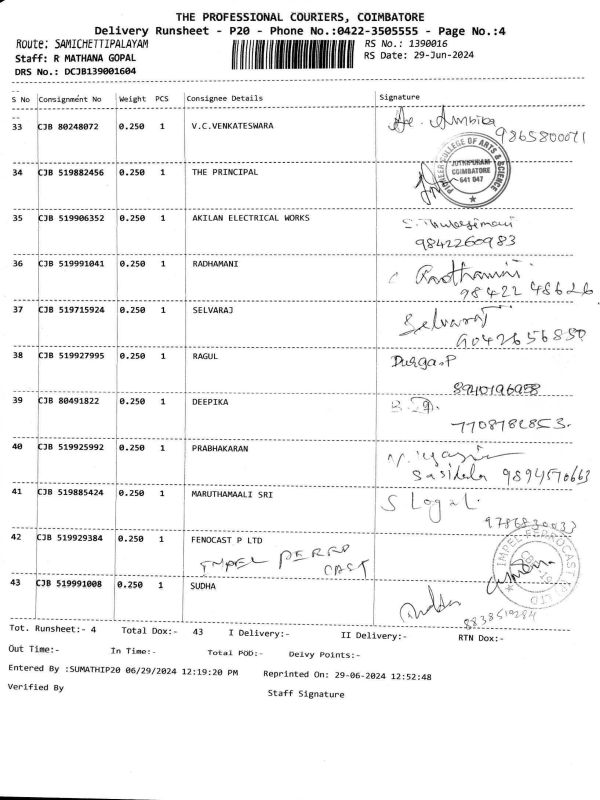 THE PROFESSIONAL COURIERS, COIMBATORE
Delivery Runsheet - P20 - Phone No.:0422-3505555 - Page No.:4
Route: SAMICHETTIPALAYAM RS No.: 1390016
Staff: R MATHANA GOPAL RS Date: 29-Jun-2024
DRS No.: DCJB139001604
S No Consignment No Weight PCS Consignee Details Signature
33 CJB 80248072 0.250 1 V.C.VENKATESWARA Ambika
9865800071
34 CJB 519882456 0.250 1 THE PRINCIPAL
PIONEER COLLEGE OF ARTS & SCIENCE
JOTHIPURAM
COIMBATORE
641 047
35 CJB 519906352 0.250 1 AKILAN ELECTRICAL WORKS
9842260983
36 CJB 519991041 0.250 1 RADHAMANI Radhamani
98422 48626
37 CJB 519715924 0.250 1 SELVARAJ Selvaraj
9042656850
38 CJB 519927995 0.250 1 RAGUL Durga.P
8940196958
39 CJB 80491822 0.250 1 DEEPIKA
40 CJB 519925992 0.250 1 PRABHAKARAN
Sasikala 9894570663
41 CJB 519885424 0.250 1 MARUTHAMAALI SRI S Logal
9786830033
42 CJB 519929384 0.250 1 FENOCAST P LTD
IMPEL FERRO
CAST
IMPEL FERROCAST (P) LTD
43 CJB 519991008 0.250 1 SUDHA
8838519284
Tot. Runsheet:- 4 Total Dox:- 43 I Delivery:- II Delivery:- RTN Dox:-
Out Time:- In Time:- Total POD:- Delvy Points:-
Entered By :SUMATHIP20 06/29/2024 12:19:20 PM Reprinted On: 29-06-2024 12:52:48
Verified By Staff Signature